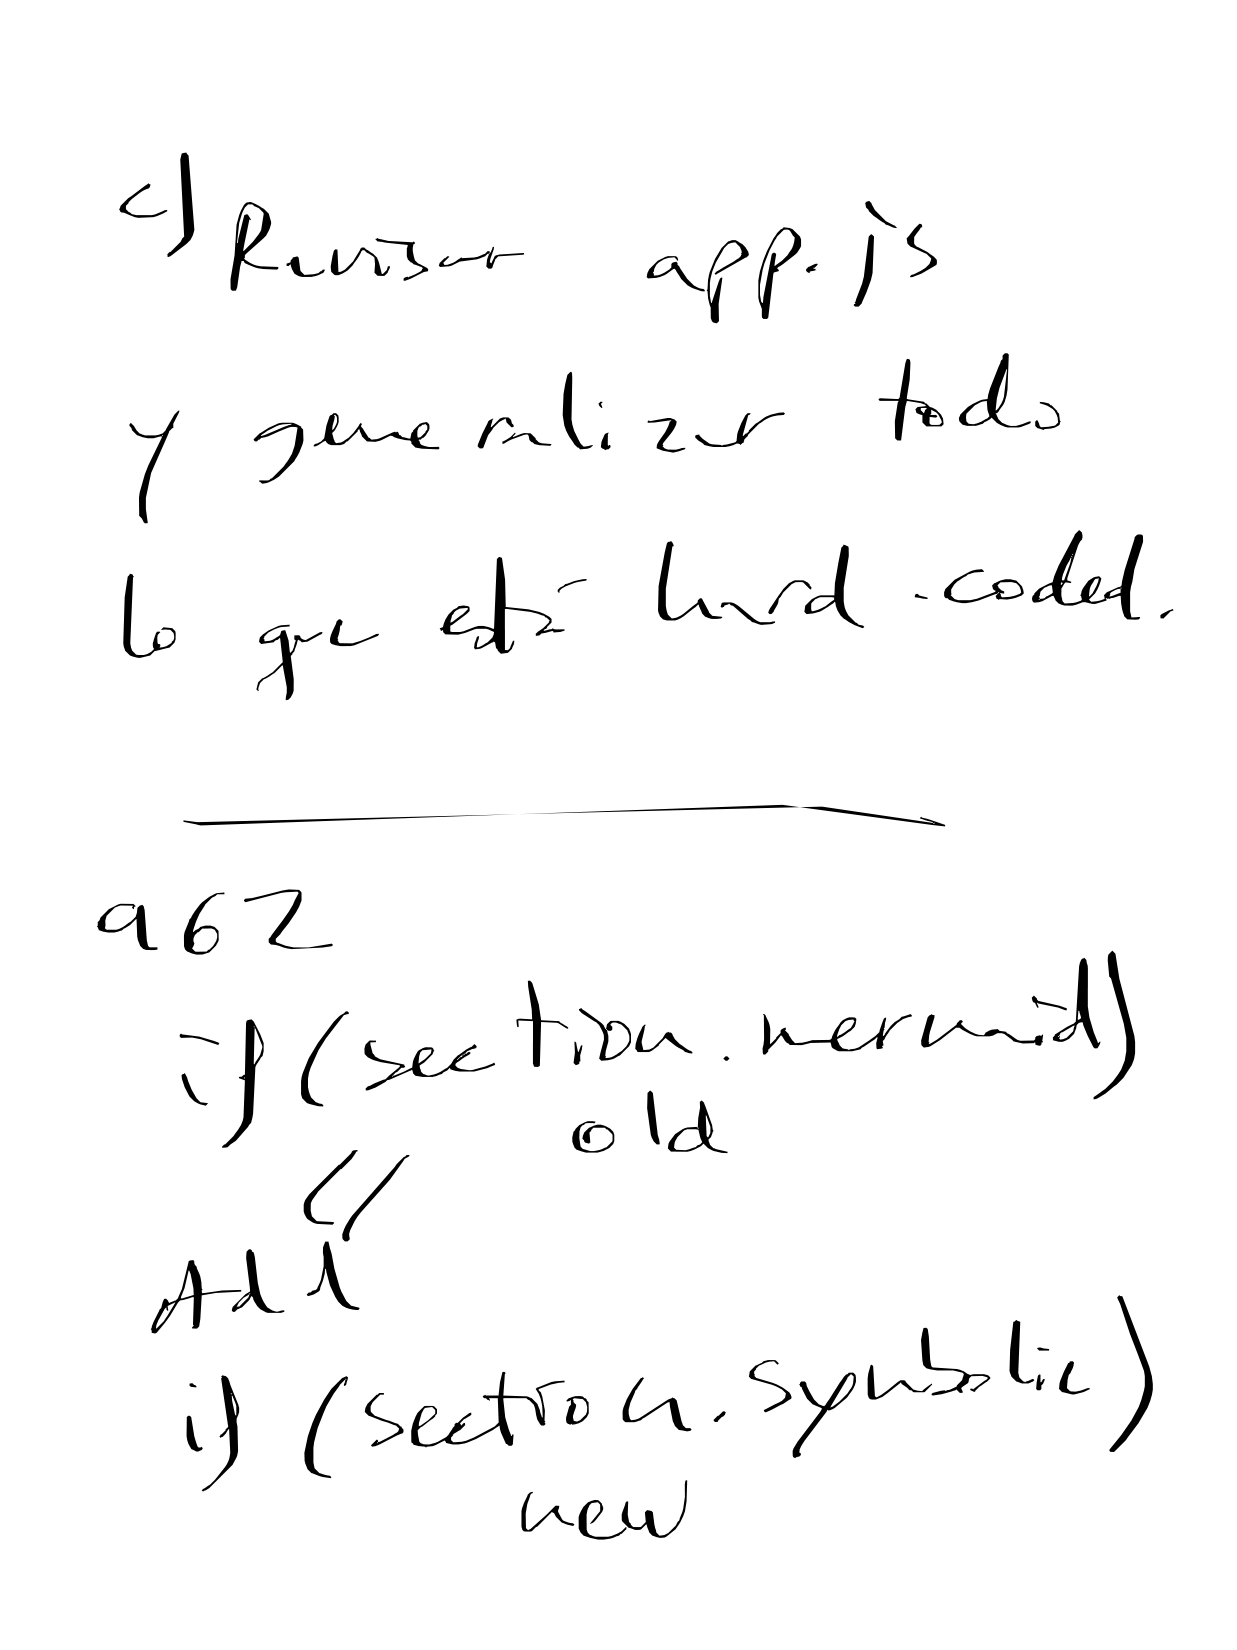 c) Revisar app.js
y generalizar todo
lo que está hard-coded.
962
if (section.mermaid)
old
//
Add
if (section.symbolic)
new